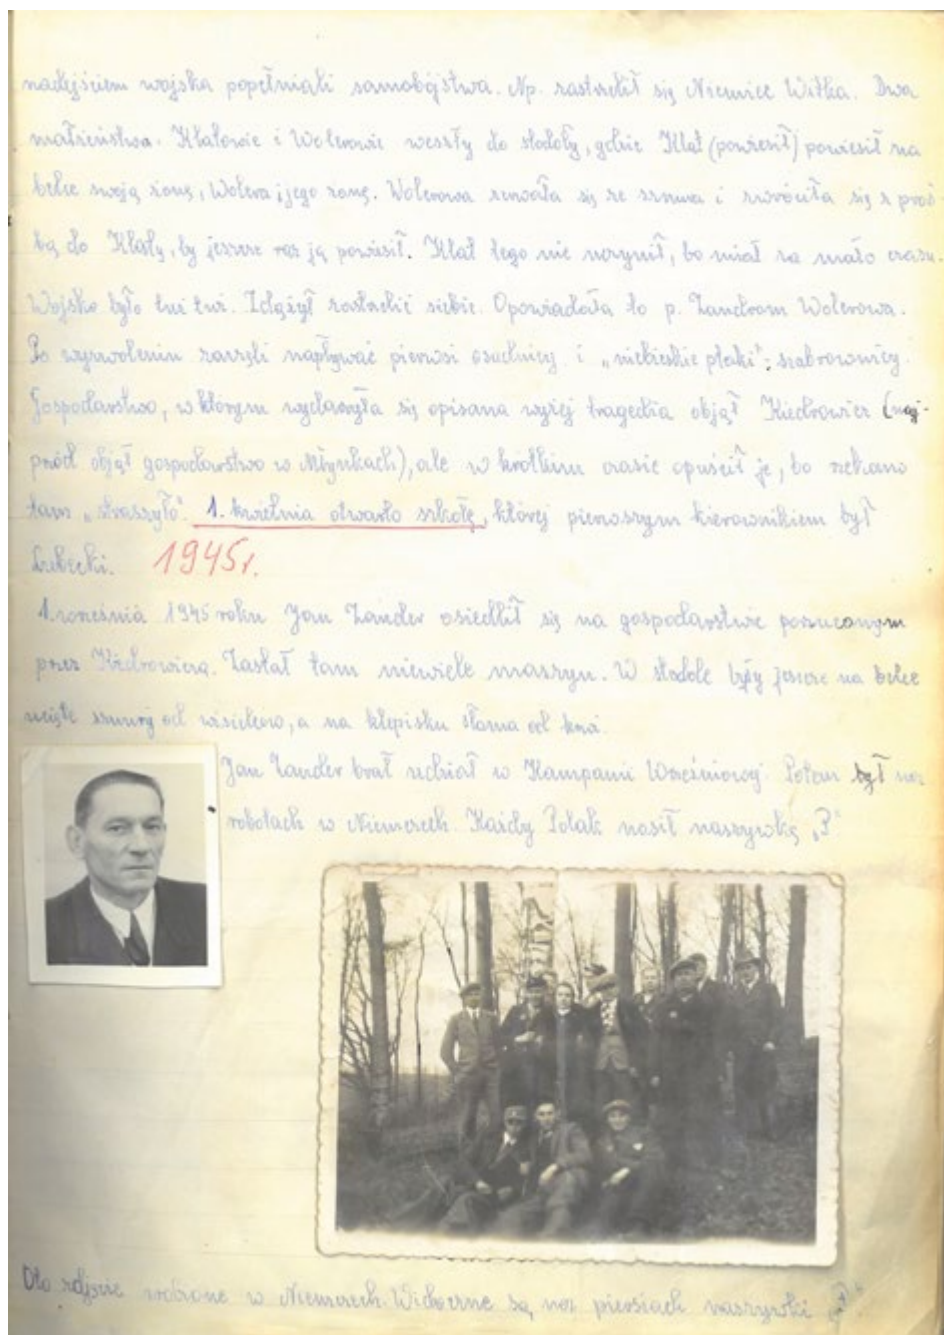 nadejściem wojska popełniali samobójstwa. Np. zastrzelił się Niemiec Witka. Dwa
małżeństwa. Klatowie i Wolerowie weszły do stodoły, gdzie Klat (powiesił) powiesił na
belce swoją żonę, Wolera i jego żonę. Wolerowa zerwała się ze sznura i zwróciła się z proś-
bą do Klaty, by jeszcze raz ją powiesił. Klat tego nie uczynił, bo miał za mało czasu.
Wojsko było tuż tuż. Zdążył zastrzelić siebie. Opowiadała to p. Zandrom Wolerowa.
Po wyzwoleniu zaczęli napływać pierwsi osadnicy i „niebieskie ptaki": szabrownicy.
Gospodarstwo, w którym wydarzyła się opisana wyżej tragedia objął Kiedrowicz (naj-
pród objął gospodarstwo w Młynkach), ale w krótkim czasie opuścił je, bo rzekomo
tam „straszyło". 1. kwietnia otwarto szkołę, której pierwszym kierownikiem był
Lubecki. 1945r.
1. września 1945 roku Jan Zander osiedlił się na gospodarstwie porzuconym
przez Kiedrowicza. Zastał tam niewiele maszyn. W stodole były jeszcze na belce
ucięte sznury od wisielców, a na klepisku słoma od krwi.
Jan Zander brał udział w Kampanii Wrześniowej. Potem był na
robotach w Niemczech. Każdy Polak nosił naszywkę „P"
Oto zdjęcie zrobione w Niemczech. Widoczne są na piersiach naszywki „P".